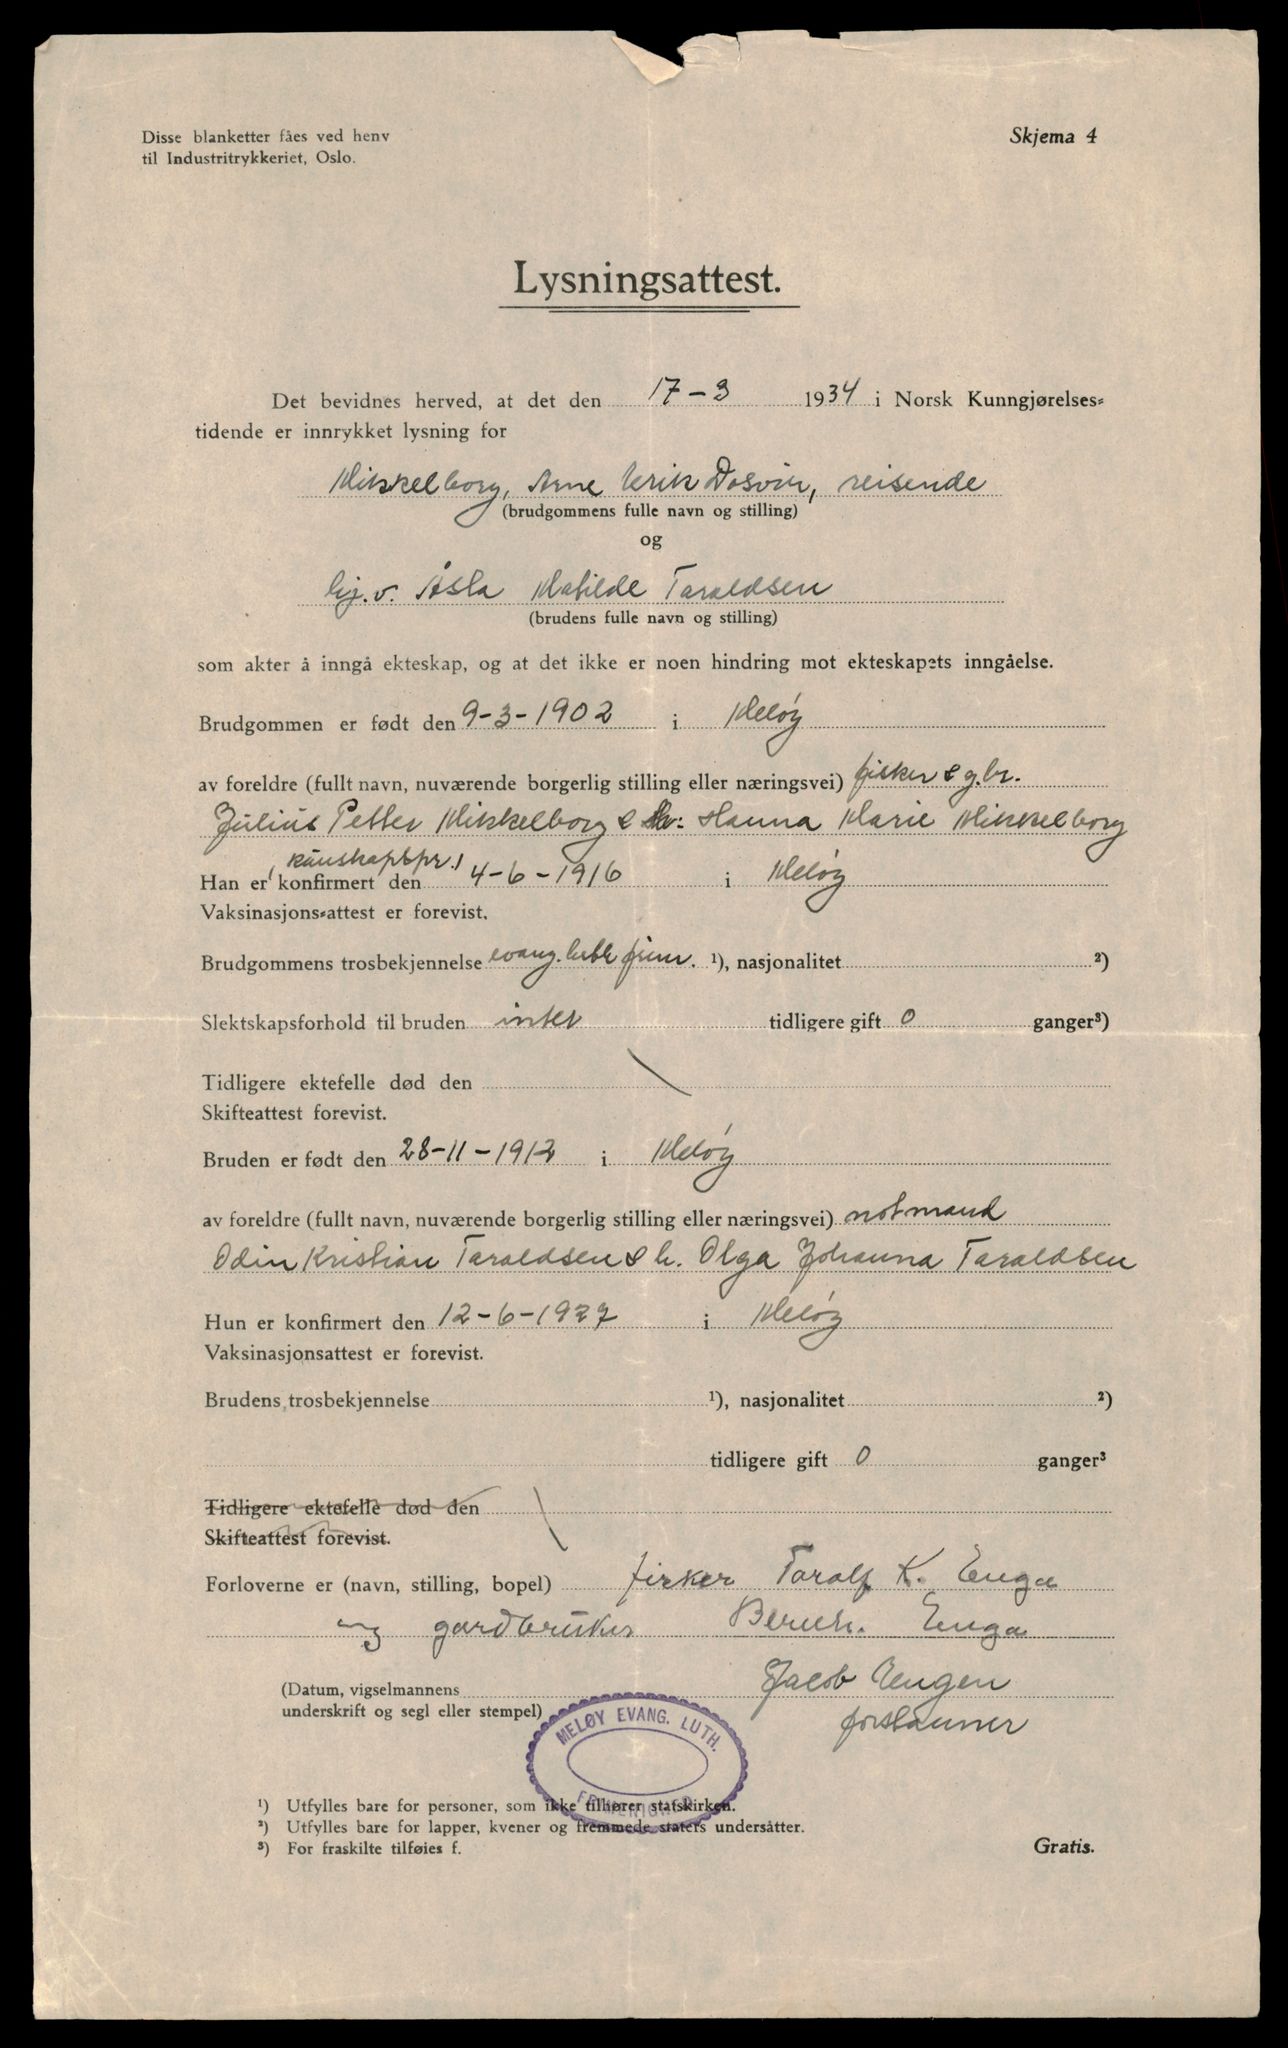 Disse blanketter fåes ved henv
til Industritrykkeriet, Oslo.
Skjema 4
Lysningsattest.
Det bevidnes herved, at det den 17-3 1934 i Norsk Kunngjørelses-
tidende er innrykket lysning for
Mikkelborg, Arne Erik Dosvin, reisende
(brudgommens fulle navn og stilling)
og
hj.v. Åsla Matilde Taraldsen
(brudens fulle navn og stilling)
som akter å inngå ekteskap, og at det ikke er noen hindring mot ekteskapets inngåelse.
Brudgommen er født den 9-3-1902 i Meløy
av foreldre (fullt navn, nuværende borgerlig stilling eller næringsvei) fisker & g.br.
Julius Petter Mikkelborg & h: Hanna Marie Mikkelborg
kunskapspr.
Han er konfirmert den 4-6-1916 i Meløy
Vaksinasjons-attest er forevist.
Brudgommens trosbekjennelse evang. luth frim. ¹), nasjonalitet ²)
Slektskapsforhold til bruden intet tidligere gift 0 ganger³)
Tidligere ektefelle død den
Skifteattest forevist.
Bruden er født den 28-11-1912 i Meløy
av foreldre (fullt navn, nuværende borgerlig stilling eller næringsvei) notmand
Odin Kristian Taraldsen & h. Olga Johanna Taraldsen
Hun er konfirmert den 12-6-1927 i Meløy
Vaksinasjonsattest er forevist.
Brudens trosbekjennelse ¹), nasjonalitet ²)
tidligere gift 0 ganger³
Tidligere ektefelle død den
Skifteattest forevist.
Forloverne er (navn, stilling, bopel) fisker Taralf K. Enga
og gardbruker Bernh. Enga
(Datum, vigselmannens Jacob Engen
underskrift og segl eller stempel) forstanner
MELØY EVANG. LUTH.
FRIMENIGHED
¹) Utfylles bare for personer, som ikke tilhører statskirken.
²) Utfylles bare for lapper, kvener og fremmede staters undersåtter.
³) For fraskilte tilføies f.
Gratis.